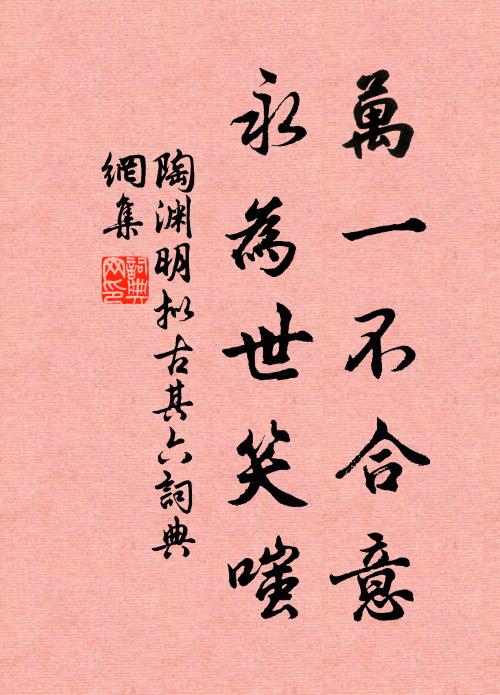 萬一不合意
永為世笑嗤
陶渊明拟古其六詞典
網集
詞典
网印